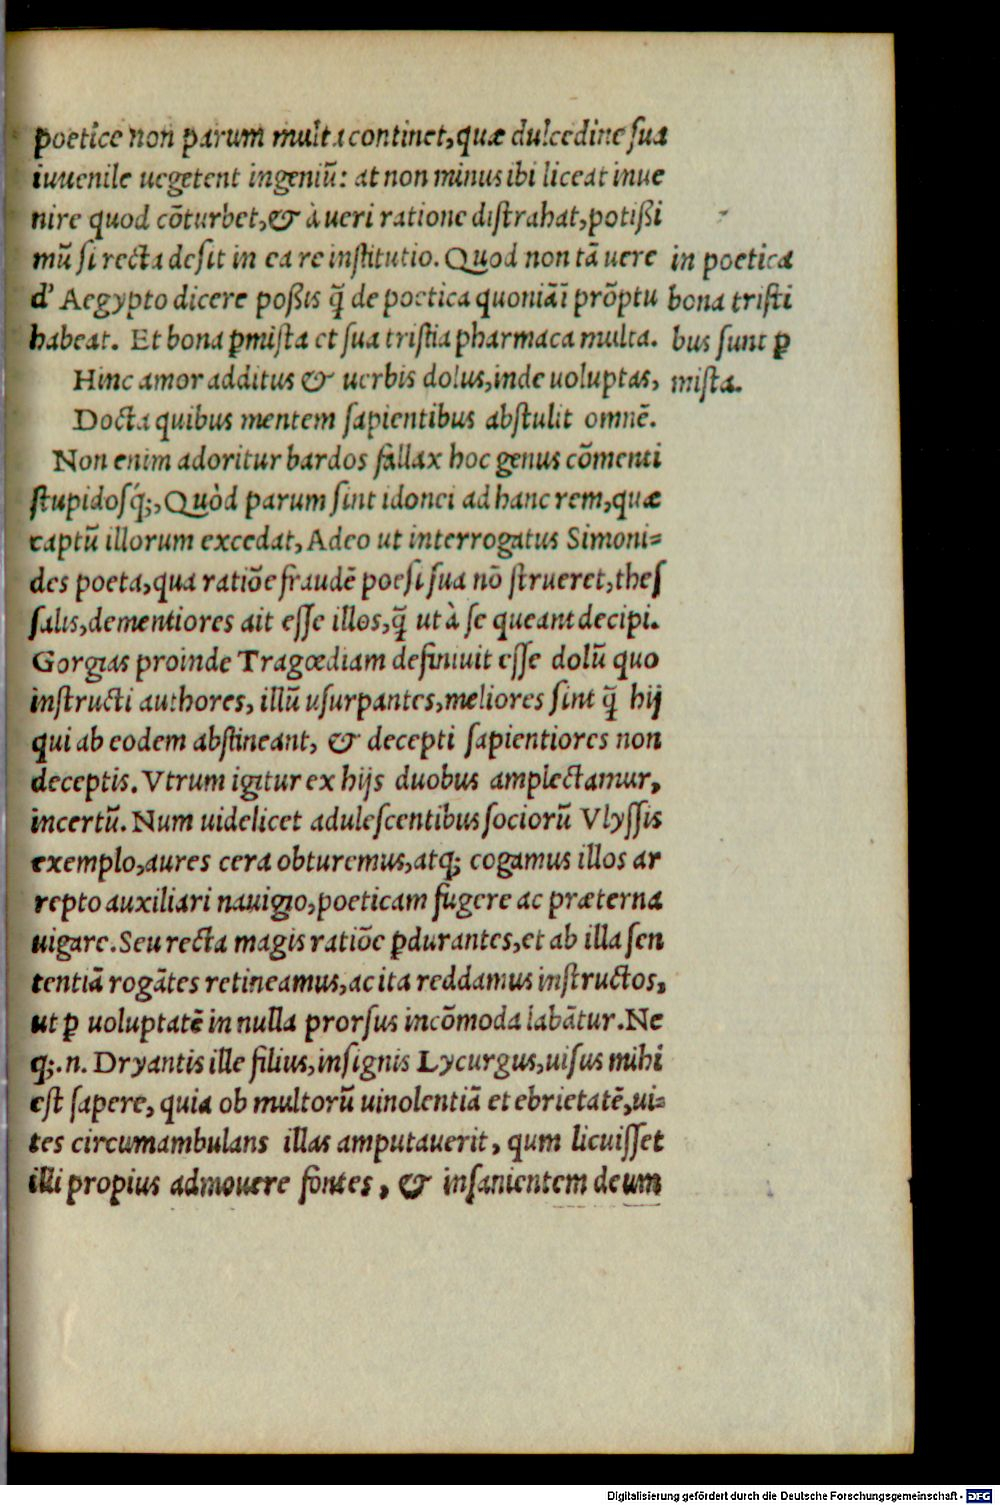 poetice non parum multa continet, quæ dulcedine ſua
iuuenile uegetent ingeniũ: at non minus ibi liceat inue
nire quod cõturbet, & à ueri ratione diſtrahat, potißi
mũ ſi recta deſit in ea re inſtitutio. Quod non tã uere
d' Aegypto dicere poßis q̃ de poetica quoniã ĩ prõptu
habeat. Et bona ꝑmiſta et ſua triſtia pharmaca multa.
in poetica
bona triſti
bus ſunt ꝑ
miſta.
Hinc amor additus & uerbis dolus, inde uoluptas,
Docta quibus mentem ſapientibus abſtulit omnẽ.
Non enim adoritur bardos fallax hoc genus cõmenti
ſtupidoſq́;, Quòd parum ſint idonei ad hanc rem, quæ
captũ illorum excedat, Adeo ut interrogatus Simoni=
des poeta, qua ratiõe fraudẽ poeſi ſua nõ ſtrueret, theſ
ſalis, dementiores ait eſſe illos, q̃ ut à ſe queant decipi.
Gorgias proinde Tragœdiam definiuit eſſe dolũ quo
inſtructi authores, illũ uſurpantes, meliores ſint q̃ hij
qui ab eodem abſtineant, & decepti ſapientiores non
deceptis. Vtrum igitur ex hijs duobus amplectamur,
incertũ. Num uidelicet aduleſcentibus ſociorũ Vlyſſis
exemplo, aures cera obturemus, atq; cogamus illos ar
repto auxiliari nauigio, poeticam fugere ac præterna
uigare. Seu recta magis ratiõe ꝑdurantes, et ab illa ſen
tentiã rogãtes retineamus, ac ita reddamus inſtructos,
ut ꝑ uoluptatẽ in nulla prorſus incõmoda labãtur. Ne
q;. n. Dryantis ille filius, inſignis Lycurgus, uiſus mihi
eſt ſapere, quia ob multorũ uinolentiã et ebrietatẽ, ui=
tes circumambulans illas amputauerit, qum licuiſſet
illi propius admouere fontes, & inſanientem deum
Digitalisierung gefördert durch die Deutsche Forschungsgemeinschaft - DFG